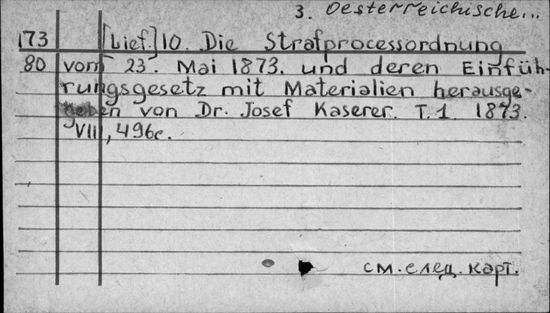 3. Oesterreichische...
173 [Lief.] 10. Die Strafprocessordnung
80 vom 23. Mai 1873. und deren Einfüh-
rungsgesetz mit Materialien herausge-
geben von Dr. Josef Kaserer. T. 1. 1873.
VIII, 496c.
см. след. карт.